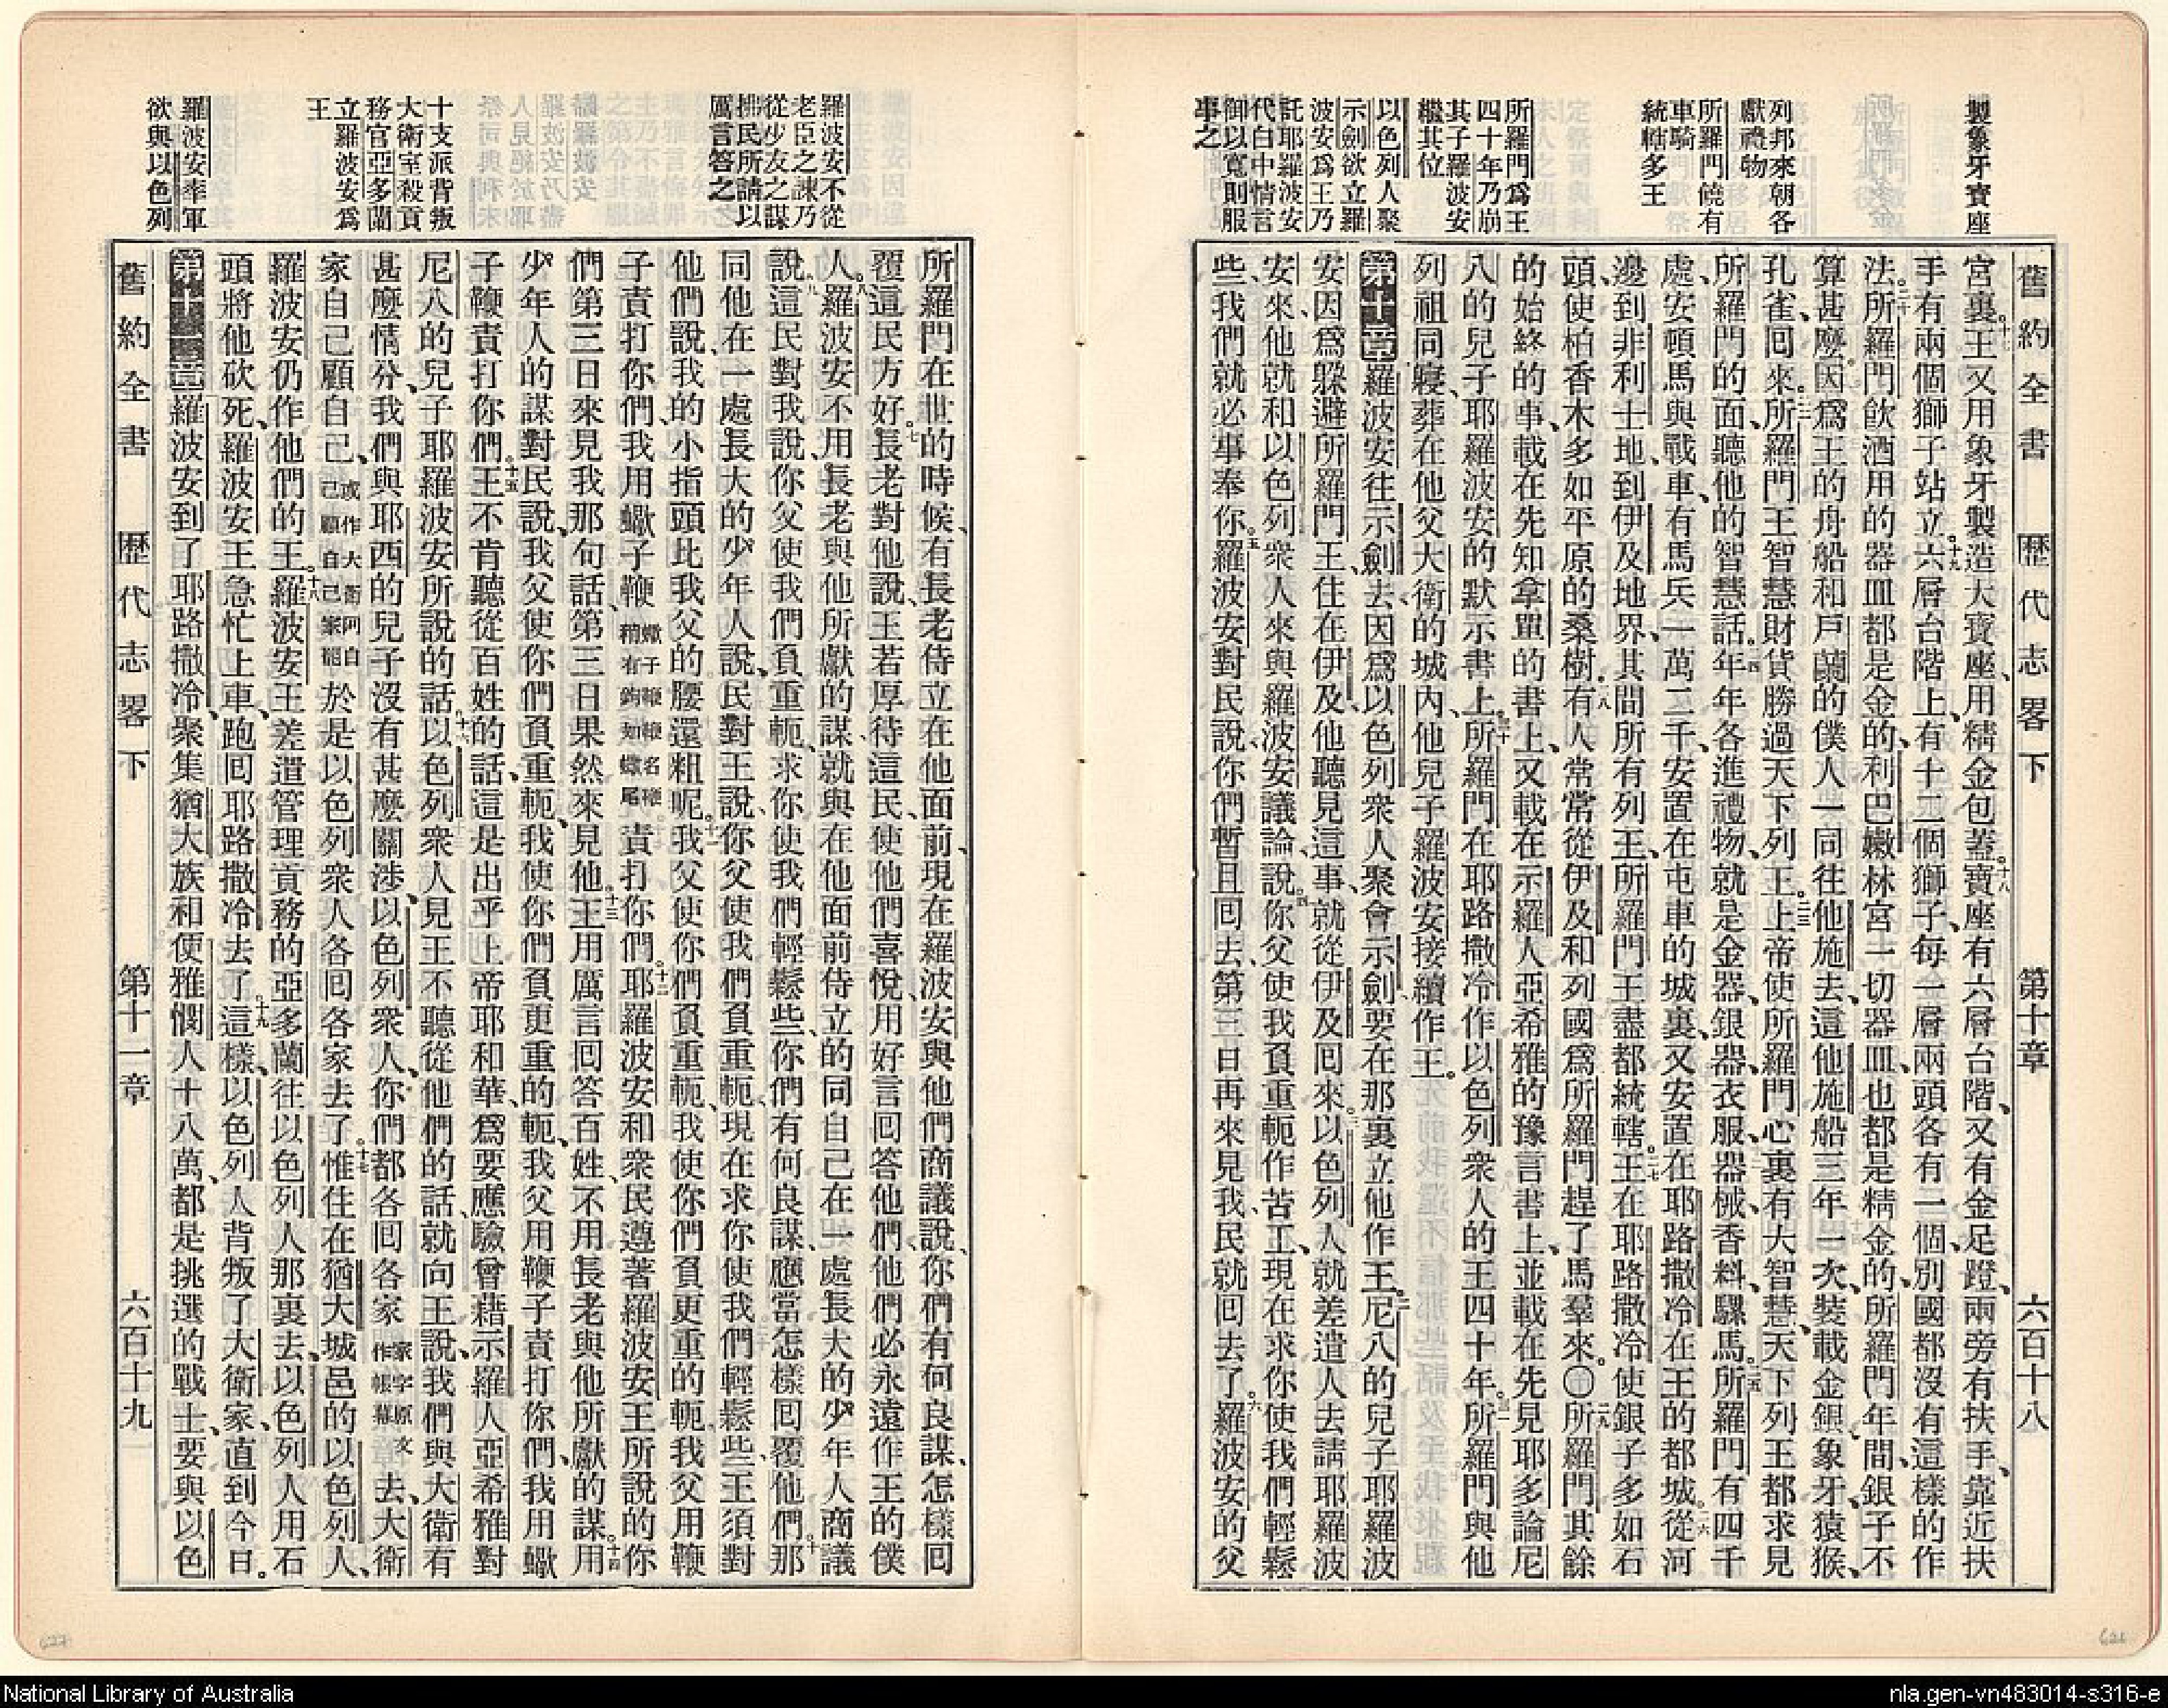 製象牙寶座
列邦來朝各
獻禮物
所羅門饒有
車騎
統轄多王
所羅門爲王
四十年乃崩
其子羅波安
繼其位
以色列人聚
示劍欲立羅
波安爲王乃
託耶羅波安
代白中情言
御以寬則服
事之
舊約全書 歷代志畧下 第十章 六百十八
宮裏、十七王又用象牙製造大寶座、用精金包蓋。十八寶座有六層台階、又有金足蹬、兩旁有扶手、靠近扶
手有兩個獅子站立。十九六層台階上、有十二個獅子、每一層兩頭各有一個、別國都沒有這樣的作
法。二十所羅門飲酒用的器皿都是金的、利巴嫩林宮一切器皿也都是精金的、所羅門年間、銀子不
算甚麼。因爲王的舟船和戶蘭的僕人一同往他施去、這他施船三年一次、裝載金銀、象牙、猿猴、
孔雀回來。所羅門王智慧財貨勝過天下列王。二三上帝使所羅門心裏有大智慧、天下列王都求見
所羅門的面、聽他的智慧話。二四年年各進禮物、就是金器、銀器、衣服、器械、香料、騾馬。二五所羅門有四千
處、安頓馬與戰車、有馬兵一萬二千、安置在屯車的城裏、又安置在耶路撒冷在王的都城。二六從河
邊到非利士地、到伊及地界、其間所有列王、所羅門王盡都統轄。二七王在耶路撒冷使銀子多如石
頭、使柏香木多如平原的桑樹。二八有人常常從伊及和列國爲所羅門趕了馬羣來。〇二九所羅門其餘
的始終的事、載在先知拿單的書上、又載在示羅人亞希雅的豫言書上、並載在先見耶多論尼
八的兒子耶羅波安的默示書上。三十所羅門在耶路撒冷作以色列衆人的王四十年。三一所羅門與他
列祖同寢、葬在他父大衛的城內、他兒子羅波安接續作王。
第十章羅波安往示劍去、因爲以色列衆人聚會示劍、要在那裏立他作王。二尼八的兒子耶羅波
安因爲躲避所羅門王、住在伊及、他聽見這事、就從伊及回來。三以色列人就差遣人去請耶羅波
安來、他就和以色列衆人來與羅波安議論、說。四你父使我負重軛作苦工、現在求你使我們輕鬆
些、我們就必事奉你。五羅波安對民說、你們暫且回去、第三日再來見我、民就回去了。六羅波安的父
羅波安不從
老臣之諫乃
從少友之謀
拂民所請以
厲言答之
十支派背叛
大衛室殺貢
務官亞多蘭
立羅波安爲
王
羅波安率軍
欲與以色列
所羅門在世的時候、有長老侍立在他面前、現在羅波安與他們商議說、你們有何良謀、怎樣回
覆這民方好。七長老對他說、王若厚待這民、使他們喜悅、用好言回答他們、他們必永遠作王的僕
人。八羅波安不用長老與他所獻的謀、就與在他面前侍立的同自己在一處長大的少年人商議
說。九這民對我說、你父使我們負重軛、求你使我們輕鬆些、你們有何良謀、應當怎樣回覆他們。十那
同他在一處長大的少年人說、民對王說、你父使我們負重軛、現在求你使我們輕鬆些、王須對
他們說、我的小指頭比我父的腰還粗呢。十一我父使你們負重軛、我使你們負更重的軛、我父用鞭
子責打你們、我用蠍子鞭蠍子鞭鞭名鞭稍有鉤如蠍尾責打你們。十二耶羅波安和衆民遵著羅波安王所說的你
們第三日來見我那句話、第三日果然來見他。十三王用厲言回答百姓、不用長老與他所獻的謀。十四用
少年人的謀對民說、我父使你們負重軛、我使你們負更重的軛、我父用鞭子責打你們、我用蠍
子鞭責打你們。十五王不肯聽從百姓的話、這是出乎上帝耶和華、爲要應驗曾藉示羅人亞希雅對
尼八的兒子耶羅波安所說的話。十六以色列衆人見王不聽從他們的話、就向王說、我們與大衛有
甚麼情分、我們與耶西的兒子沒有甚麼關涉、以色列衆人、你們都各回各家家字原文作帳幕去、大衛
家自己顧自己、或作大衛阿自己顧自己家罷於是以色列衆人各回各家去了。十七惟住在猶大城邑的以色列人、
羅波安仍作他們的王。十八羅波安王差遣管理貢務的亞多蘭往以色列人那裏去、以色列人用石
頭將他砍死、羅波安王急忙上車、跑回耶路撒冷去了。十九這樣、以色列人背叛了大衛家、直到今日。
第十一章羅波安到了耶路撒冷、聚集猶大族和便雅憫人十八萬、都是挑選的戰士、要與以色
舊約全書 歷代志畧下 第十一章 六百十九
627
626
National Library of Australia
nla.gen-vn483014-s316-e